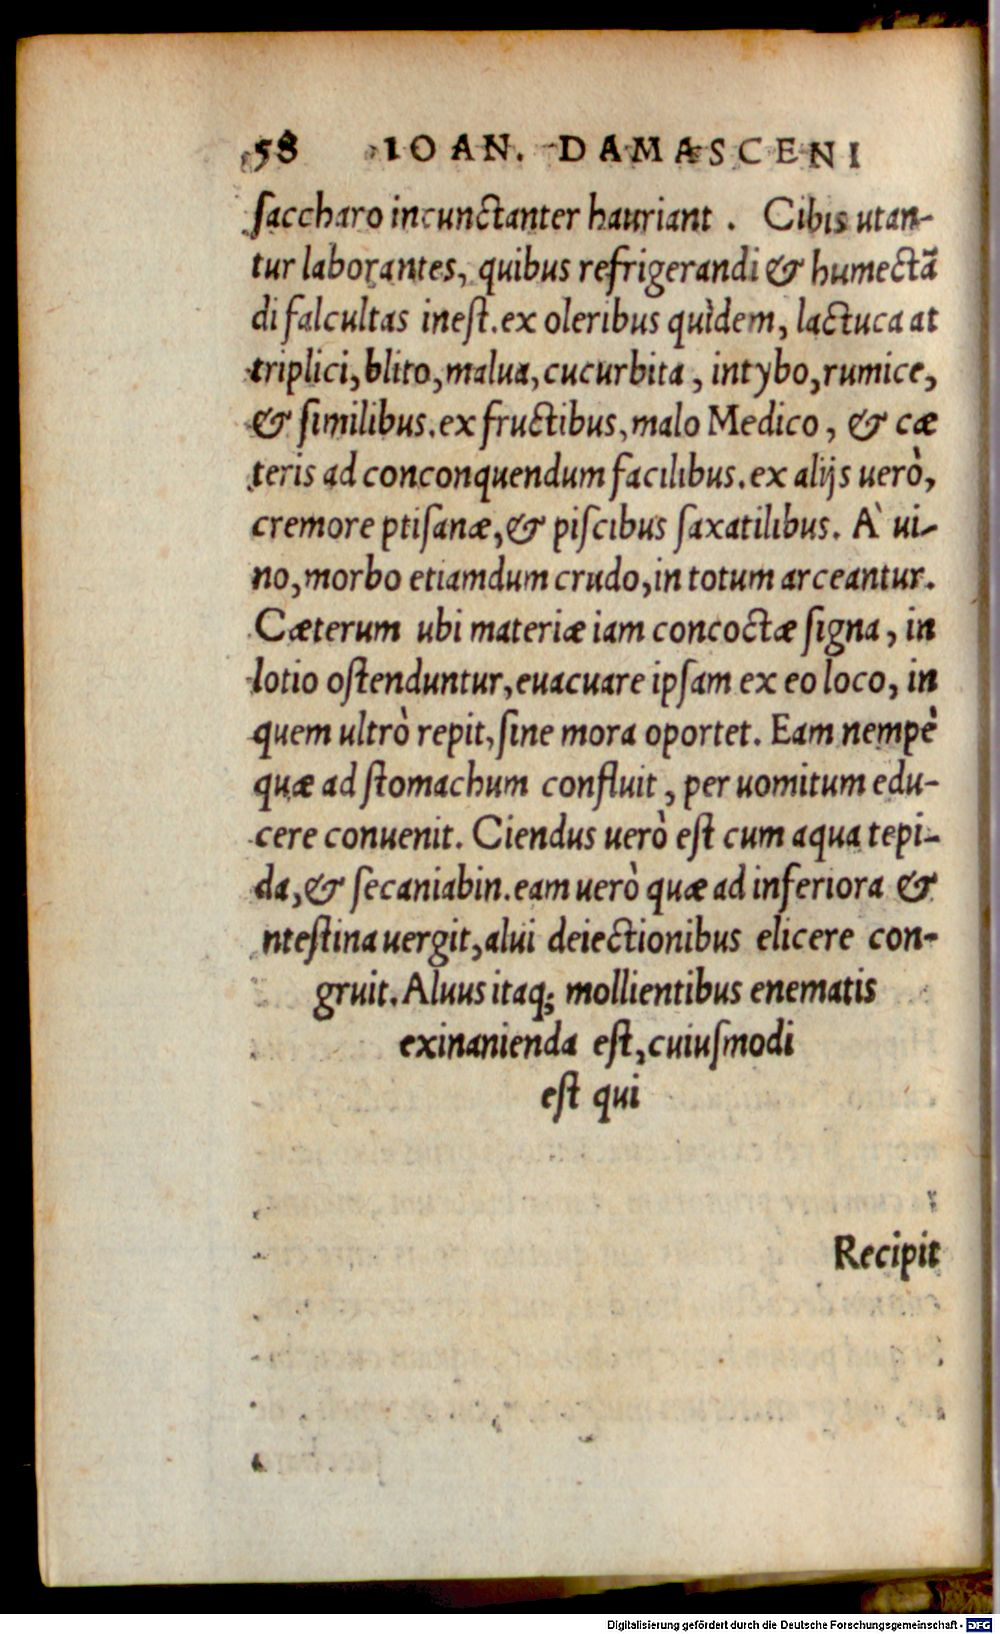 58 IOAN. DAMASCENI
saccharo incunctanter hauriant. Cibis utan-
tur laborantes, quibus refrigerandi & humectā
di falcultas inest. ex oleribus quìdem, lactuca at
triplici, blito, malua, cucurbita, intybo, rumice,
& similibus. ex fructibus, malo Medico, & cæ
teris ad conconquendum facilibus. ex alijs uerò,
cremore ptisanæ, & piscibus saxatilibus. À ui-
no, morbo etiamdum crudo, in totum arceantur.
Cæterum ubi materiæ iam concoctæ signa, in
lotio ostenduntur, euacuare ipsam ex eo loco, in
quem ultrò repit, sine mora oportet. Eam nempè
quæ ad stomachum confluit, per uomitum edu-
cere conuenit. Ciendus uerò est cum aqua tepi-
da, & secaniabin. eam uerò quæ ad inferiora &
ntestina uergit, alui deiectionibus elicere con-
gruit. Aluus itaq; mollientibus enematis
exinanienda est, cuiusmodi
est qui
Recipit
Digitalisierung gefördert durch die Deutsche Forschungsgemeinschaft - DFG